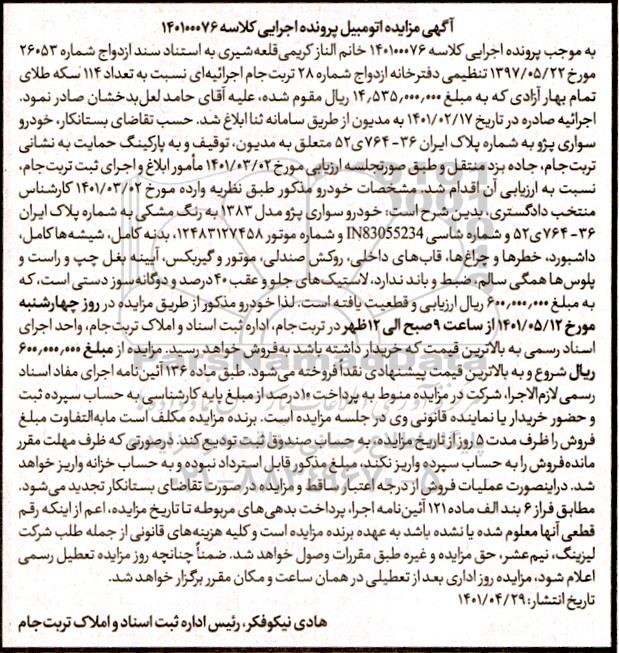 آگهی مزایده اتومبیل پرونده اجرایی کلاسه ۱۴۰۱۰۰۰۷۶
به موجب پرونده اجرایی کلاسه ۱۴۰۱۰۰۰۷۶ خانم الناز کریمی‌قلعه‌شیری به استناد سند ازدواج شماره ۲۶۰۵۳
مورخ ۱۳۹۷/۰۵/۲۲ تنظیمی دفترخانه ازدواج شماره ۲۸ تربت‌جام اجرائیه‌ای نسبت به تعداد ۱۱۴ سکه طلای
تمام بهار آزادی که به مبلغ ۱۴,۵۳۵,۰۰۰,۰۰۰ ریال مقوم شده، علیه آقای حامد لعل‌بدخشان صادر نمود.
اجرائیه صادره در تاریخ ۱۴۰۱/۰۲/۱۷ به مدیون از طریق سامانه ثنا ابلاغ شد. حسب تقاضای بستانکار، خودرو
سواری پژو به شماره پلاک ایران ۳۶-۷۶۴ی۵۲ متعلق به مدیون، توقیف و به پارکینگ حمایت به نشانی
تربت‌جام، جاده بزد منتقل و طبق صورتجلسه ارزیابی مورخ ۱۴۰۱/۰۳/۰۲ مأمور ابلاغ و اجرای ثبت تربت‌جام،
نسبت به ارزیابی آن اقدام شد. مشخصات خودرو مذکور طبق نظریه وارده مورخ ۱۴۰۱/۰۳/۰۲ کارشناس
منتخب دادگستری، بدین شرح است: خودرو سواری پژو مدل ۱۳۸۳ به رنگ مشکی به شماره پلاک ایران
۳۶-۷۶۴ی۵۲ و شماره شاسی IN83055234 و شماره موتور ۱۲۴۸۳۱۲۷۴۵۸، بدنه کامل، شیشه‌ها کامل،
داشبورد، خطرها و چراغ‌ها، قاب‌های داخلی، روکش صندلی، موتور و گیربکس، آیینه بغل چپ و راست و
پلوس‌ها همگی سالم، ضبط و باند ندارد، لاستیک‌های جلو و عقب ۴۰ درصد و دوگانه‌سوز دستی است، که
به مبلغ ۶۰۰,۰۰۰,۰۰۰ ریال ارزیابی و قطعیت یافته است. لذا خودرو مذکور از طریق مزایده در روز چهارشنبه
مورخ ۱۴۰۱/۰۵/۱۲ از ساعت ۹ صبح الی ۱۲ ظهر در تربت‌جام، اداره ثبت اسناد و املاک تربت‌جام، واحد اجرای
اسناد رسمی به بالاترین قیمت که خریدار داشته باشد به‌فروش خواهد رسید. مزایده از مبلغ ۶۰۰,۰۰۰,۰۰۰
ریال شروع و به بالاترین قیمت پیشنهادی نقداً فروخته می‌شود. طبق ماده ۱۳۶ آئین‌نامه اجرای مفاد اسناد
رسمی لازم‌الاجرا، شرکت در مزایده منوط به پرداخت ۱۰ درصد از مبلغ پایه کارشناسی به حساب سپرده ثبت
و حضور خریدار یا نماینده قانونی وی در جلسه مزایده است. برنده مزایده مکلف است مابه‌التفاوت مبلغ
فروش را ظرف مدت ۵ روز از تاریخ مزایده، به حساب صندوق ثبت تودیع کند. درصورتی که ظرف مهلت مقرر
مانده‌فروش را به حساب سپرده واریز نکند، مبلغ مذکور قابل استرداد نبوده و به حساب خزانه واریز خواهد
شد. دراینصورت عملیات فروش از درجه اعتبار ساقط و مزایده در صورت تقاضای بستانکار تجدید می‌شود.
مطابق فراز ۶ بند الف ماده ۱۲۱ آئین‌نامه اجرا، پرداخت بدهی‌های مربوطه تا تاریخ مزایده، اعم از اینکه رقم
قطعی آنها معلوم شده یا نشده باشد به عهده برنده مزایده است و کلیه هزینه‌های قانونی از جمله طلب شرکت
لیزینگ، نیم‌عشر، حق مزایده و غیره طبق مقررات وصول خواهد شد. ضمناً چنانچه روز مزایده تعطیل رسمی
اعلام شود، مزایده روز اداری بعد از تعطیلی در همان ساعت و مکان مقرر برگزار خواهد شد.
تاریخ انتشار: ۱۴۰۱/۰۴/۲۹
هادی نیکوفکر، رئیس اداره ثبت اسناد و املاک تربت‌جام